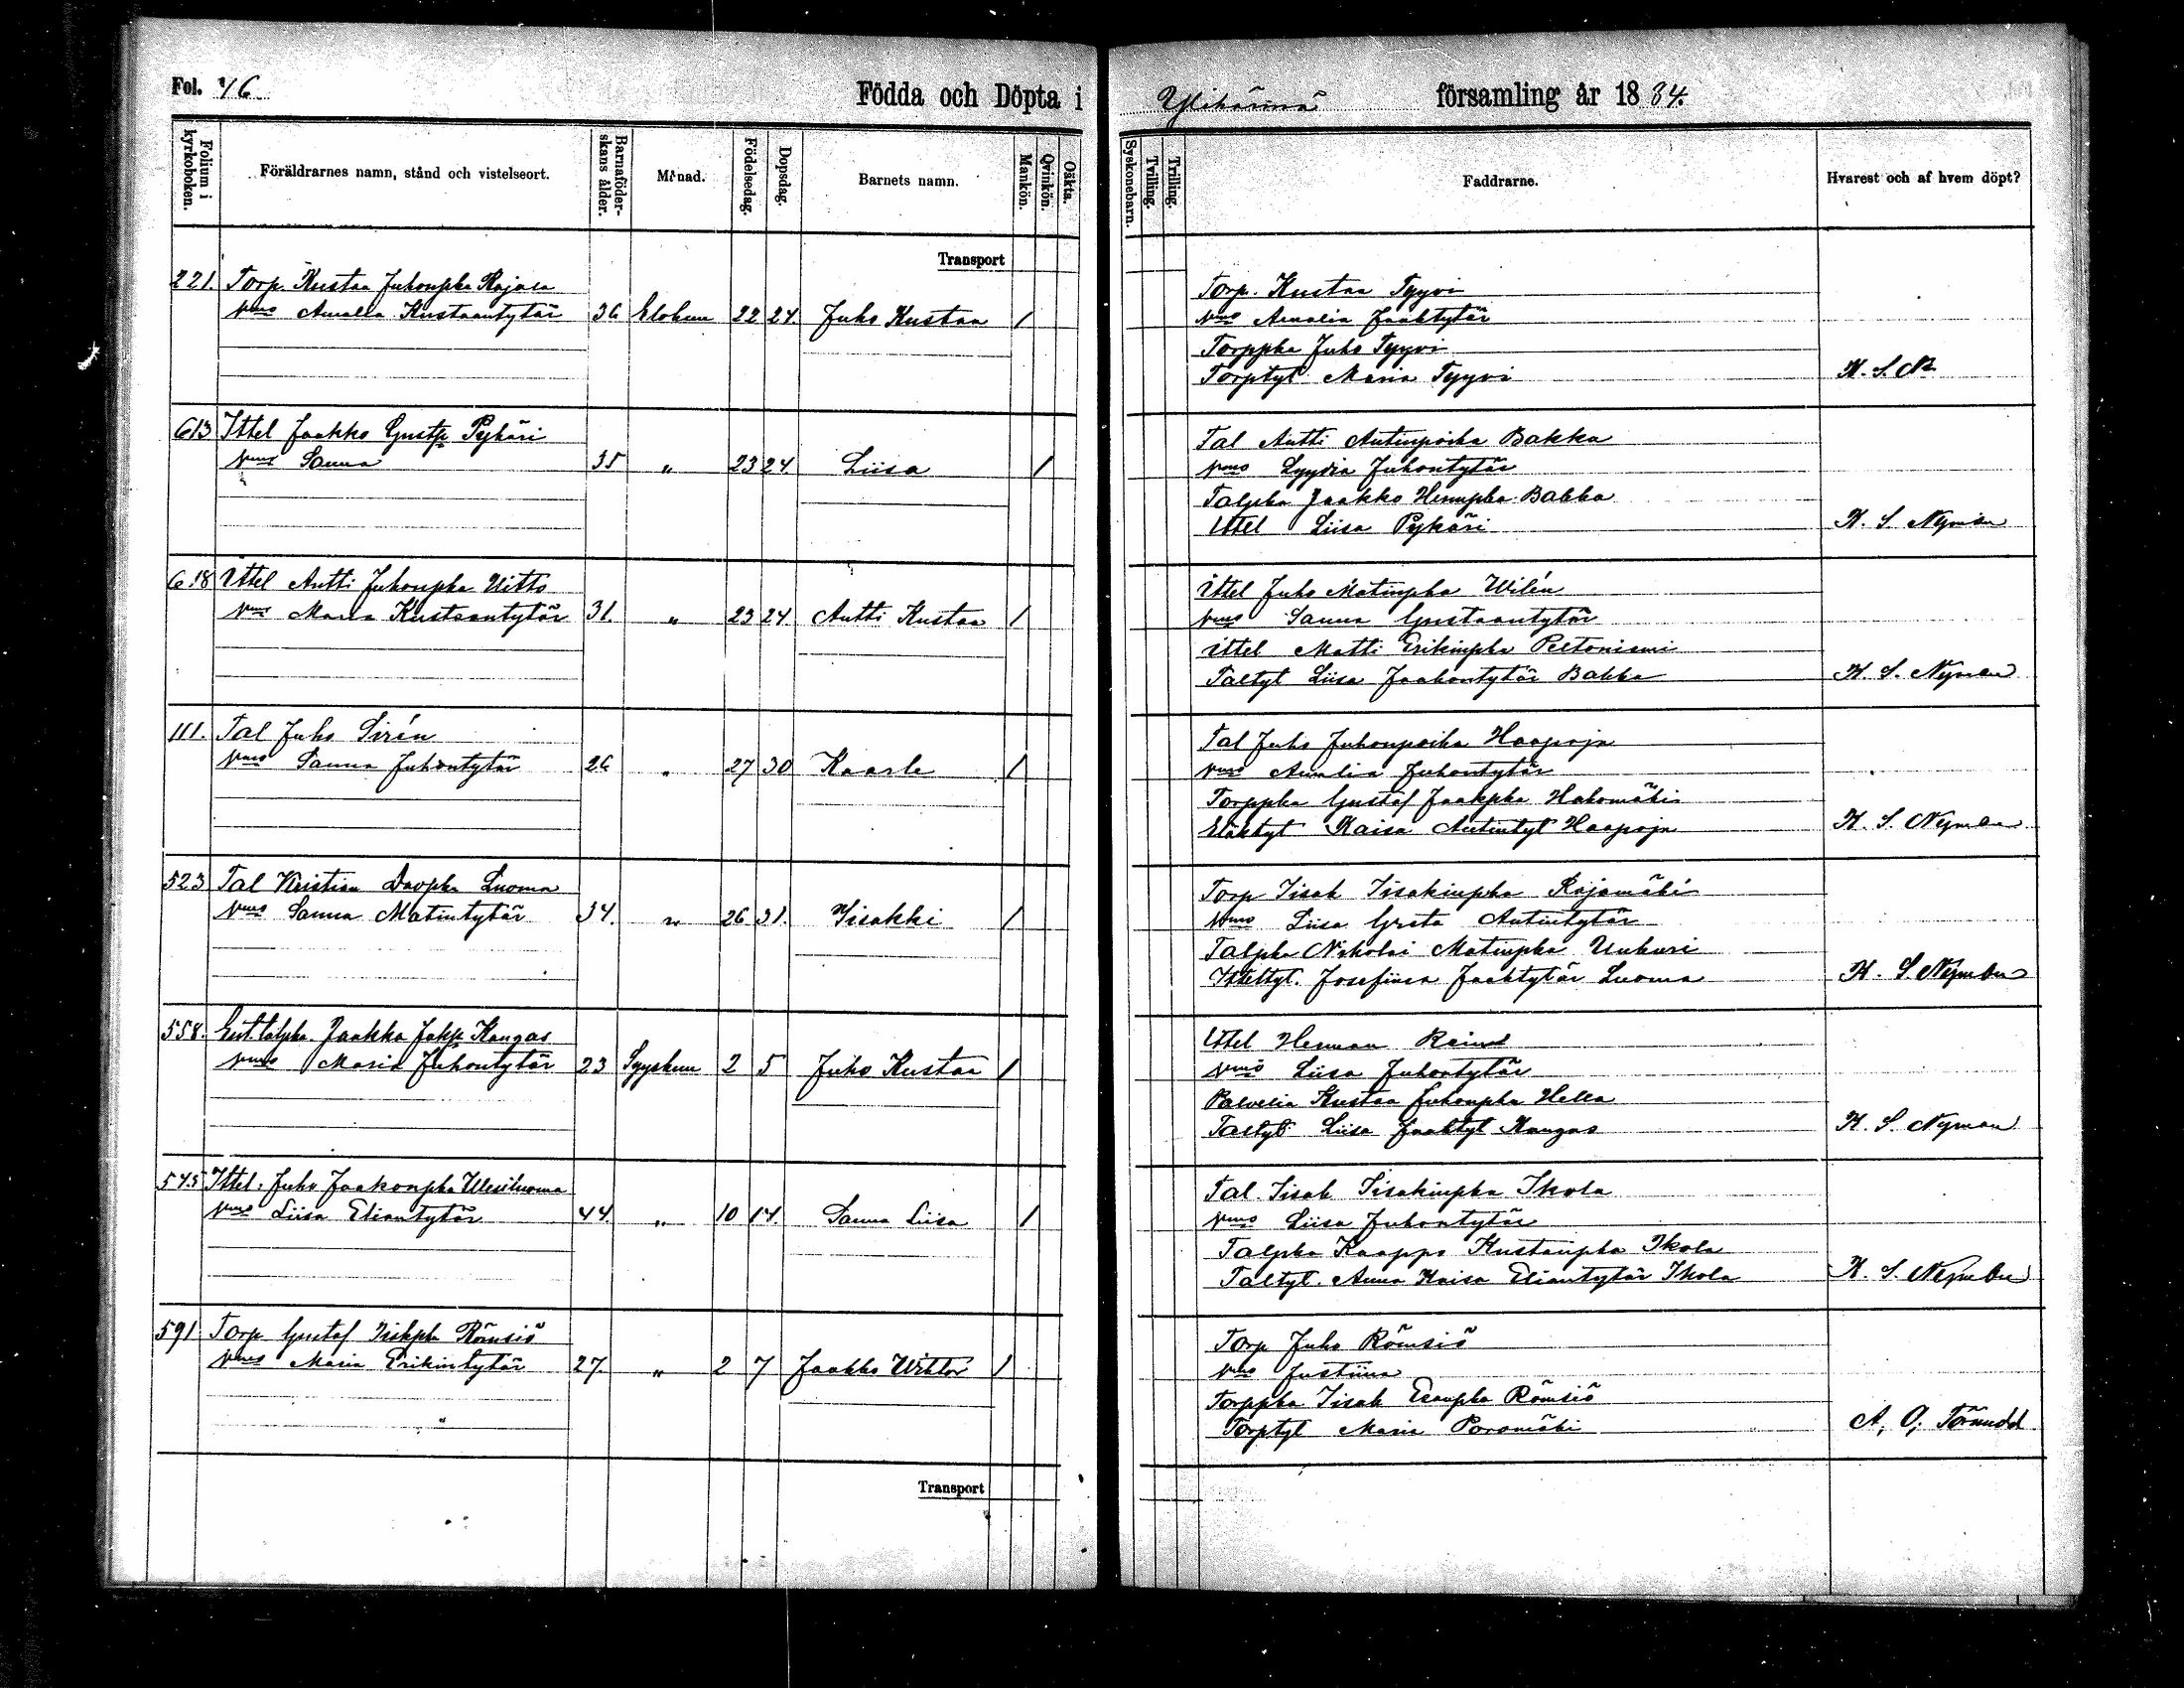 Fol. 46
Födda och Döpta i
Ylihärmä församling år 1884.
Folium i kyrkoboken.
Föräldrarnes namn, stånd och vistelseort.
Barnaföderskans ålder.
Månad.
Födelsedag.
Dopsdag.
Barnets namn.
Mankön.
Qvinkön.
Oäkta.
Syskonebarn.
Tvilling.
Trilling.
Faddrarne.
Hvarest och af hvem döpt?
Transport
221. Torp. Kustaa Juhonpka Rajala
vmo Amalia Kustaantytär 36 Elokuu 22 24. Juho Kustaa 1
Torp. Kustaa Tyyvi
vmo Amalia Jaaktytär
Torppka Juho Tyyvi
Torptyt Maria Tyyvi K. S. N
613 Ittel Jaakko Gustp Pykäri
vmo Sanna 35 „ 23 24. Liisa 1
Tal Antti Antinpoika Bakka
vmo Lyydia Juhontytär
Talpka Jaakko Hermpka Bakka
Ittel Liisa Pykäri K. S. Nyman
618 Ittel Antti Juhonpka Uitto
vmo Maria Kustaantytär 31. „ 23 24. Antti Kustaa 1
Ittel Juho Matinpka Wilén
vmo Sanna Gustaantytär
Ittel Matti Erikinpka Peltoniemi
Taltyt Liisa Jaakontytär Bakka K. S. Nyman
111. Tal Juho Sirén
vmo Sanna Juhontytär 26 „ 27 30 Kaarle 1
Tal Juho Juhonpoika Haapoja
vmo Amalia Juhontytär
Torppka Gustaf Jaakpka Hakomäki
Eläktyt Kaisa Antintyt Haapoja K. S. Nyman
523 Tal Kristian Davpka Luoma
vmo Sanna Matintytär 34. „ 26 31. Iisakki 1
Torp Iisak Iisakinpka Rajamäki
vmo Liisa Greta Antintytär
Talpka Nikolai Matinpka Unkuri
Itteltyt. Josefiina Jaaktytär Luoma K. S. Nyman
558. Ent. talpka. Jaakko Jakp Kangas
vmo Maria Juhontytär 23 Syyskuu 2 5 Juho Kustaa 1
Ittel Herman Reind
vmo Liisa Juhontytär
Palvelia Kustaa Juhonpka Hella
Taltyt Liisa Jaaktyt Kangas K. S. Nyman
545 Ittel. Juho Jaakonpka Wesiluoma
vmo Liisa Eliantytär 44. „ 10 14. Sanna Liisa 1
Tal. Iisak Iisakinpka Ikola
vmo Liisa Juhontytär
Talpka Kaappo Kustaapka Ikola
Taltyt. Anna Kaisa Eliantytär Ikola K. S. Nyman
591 Torp Gustaf Isakpka Römsiö
vmo Maria Erikintytär 27. „ 2 7 Jaakko Wihtori 1
Torp Juho Römsiö
vmo Justiina
Torppka Iisak Esaupka Römsiö
Torptyt Maria Poromäki A. O. Törnudd
Transport